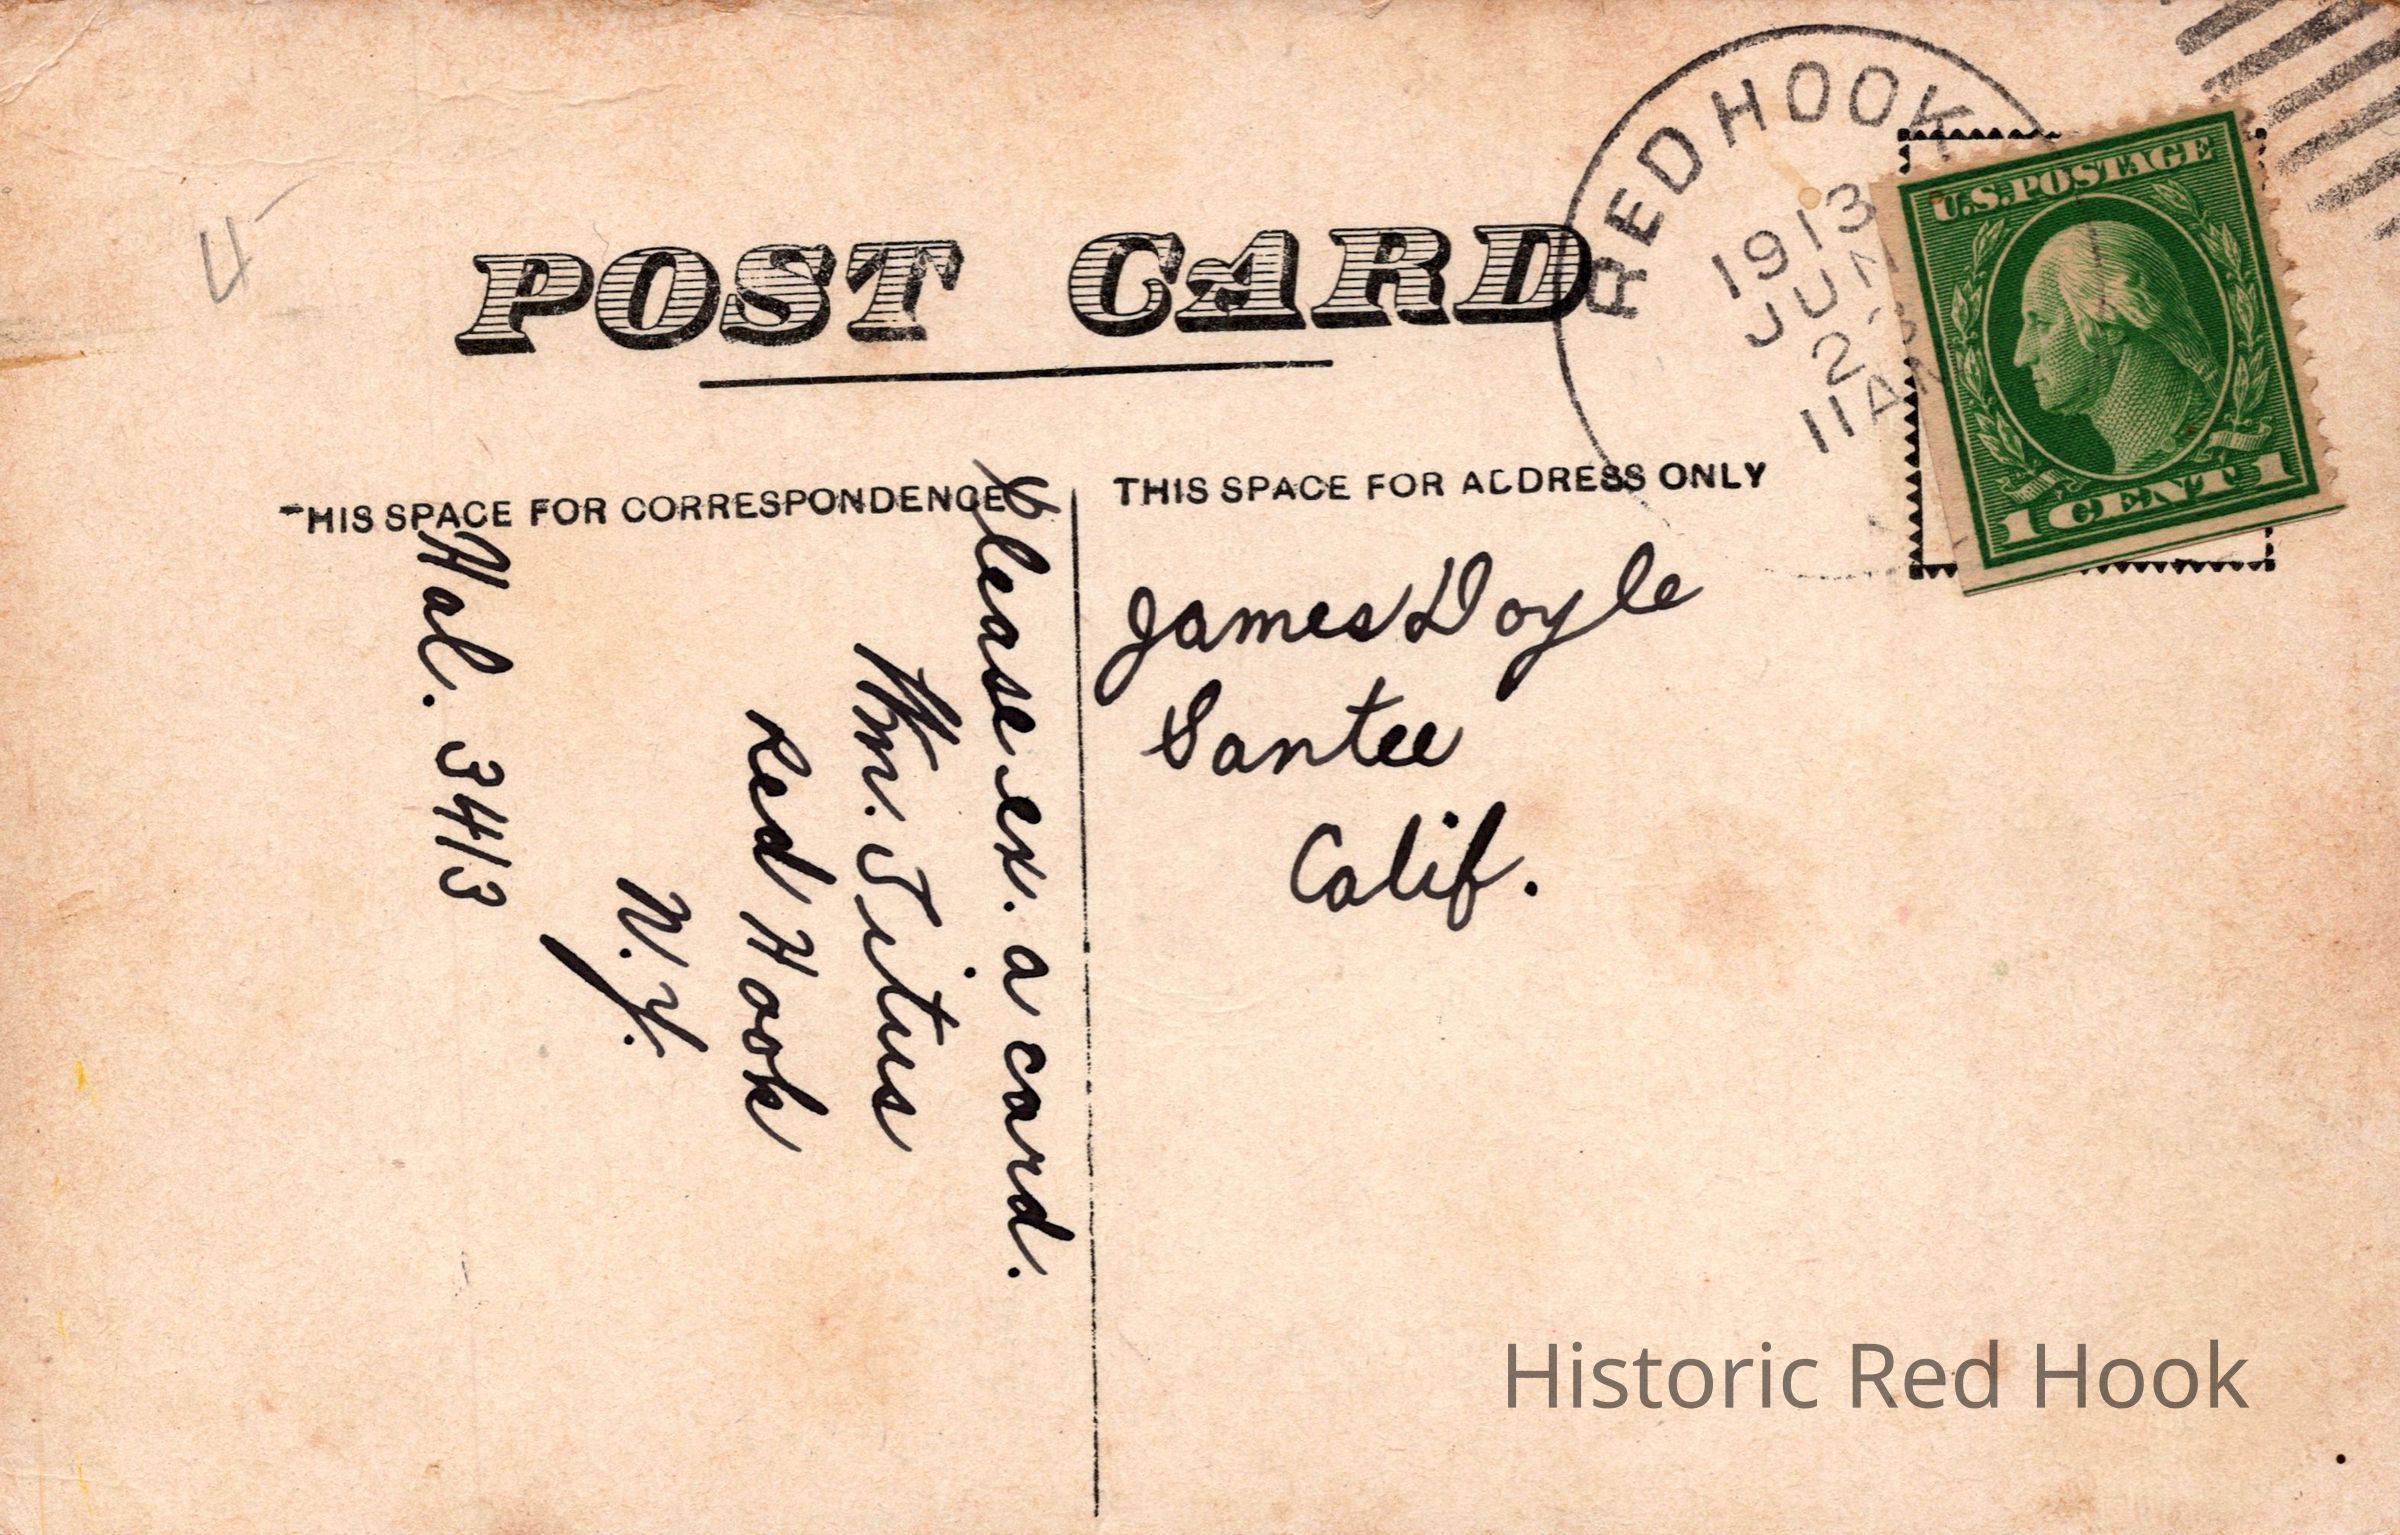 4
RED HOOK
1913
JUN
23
11 AM
U.S. POSTAGE
1 CENT 1
POST CARD
HIS SPACE FOR CORRESPONDENCE
THIS SPACE FOR ADDRESS ONLY
Please ex. a card.
Wm. Titus
Red Hook
N.Y.
Hal. 3413
James Doyle
Santee
Calif.
Historic Red Hook